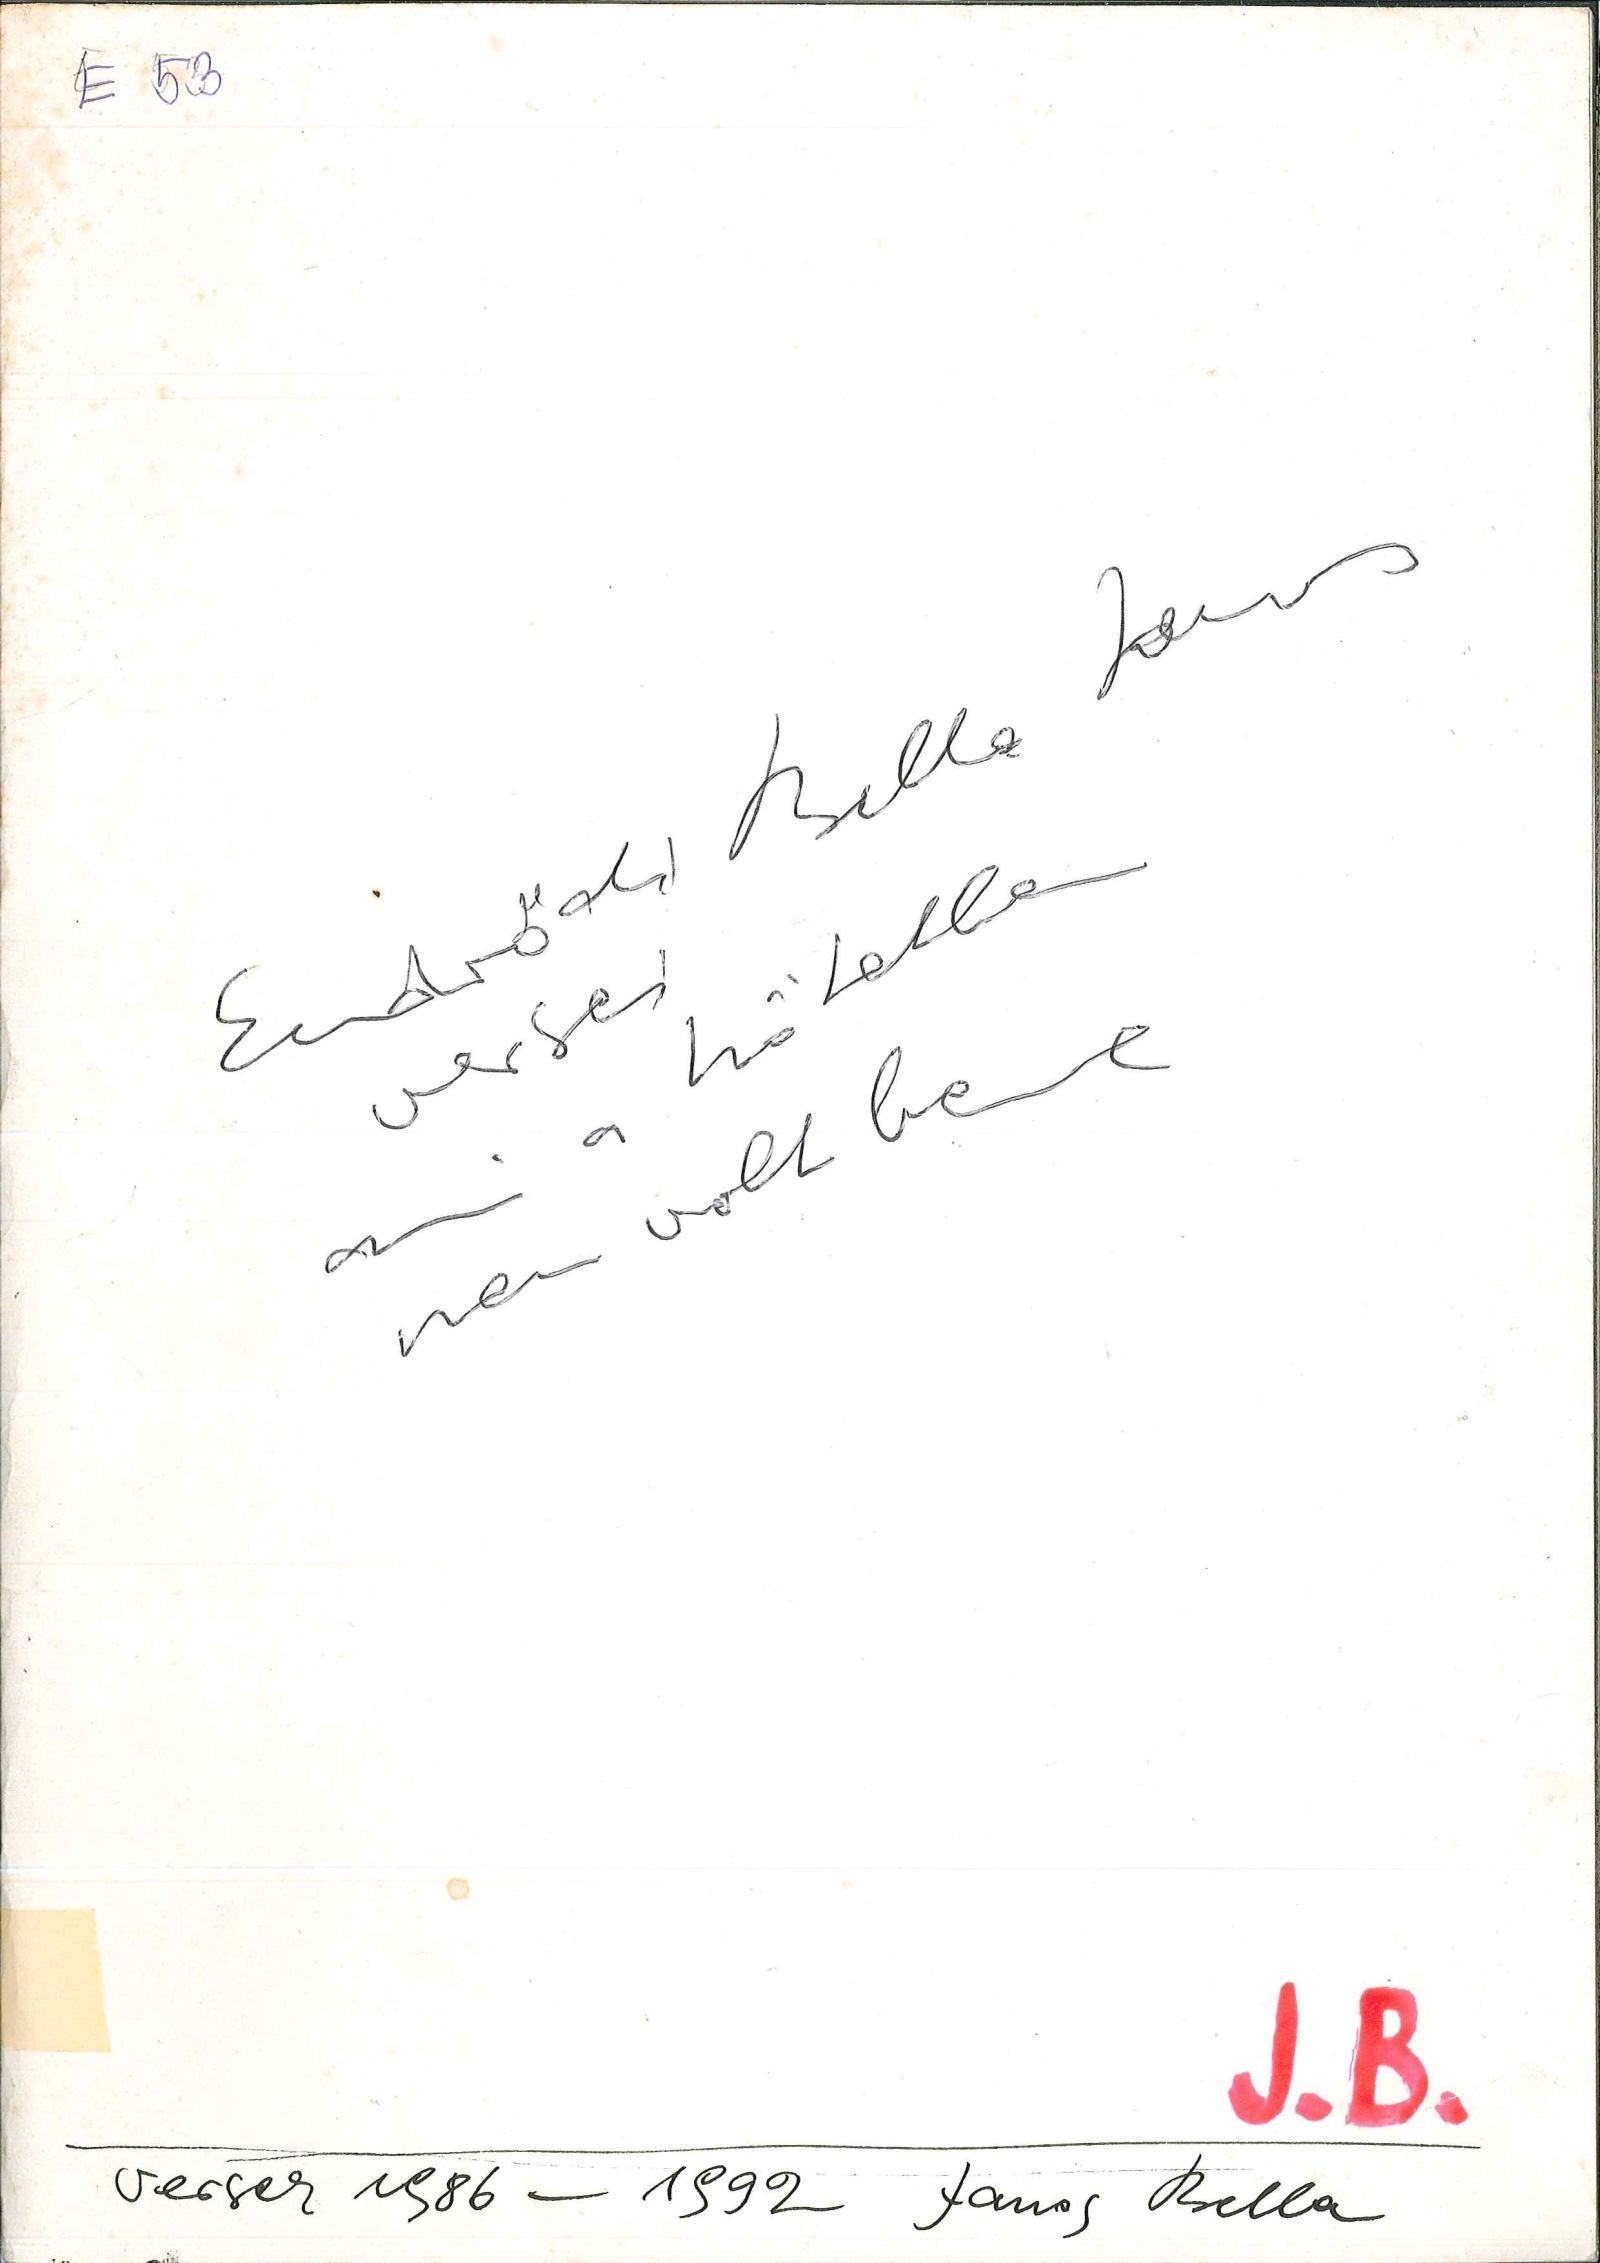 E 53
Endrődi Bella János
versei
ami a kötetben
nem volt benne
J.B.
versek 1986 – 1992 Janos Bella